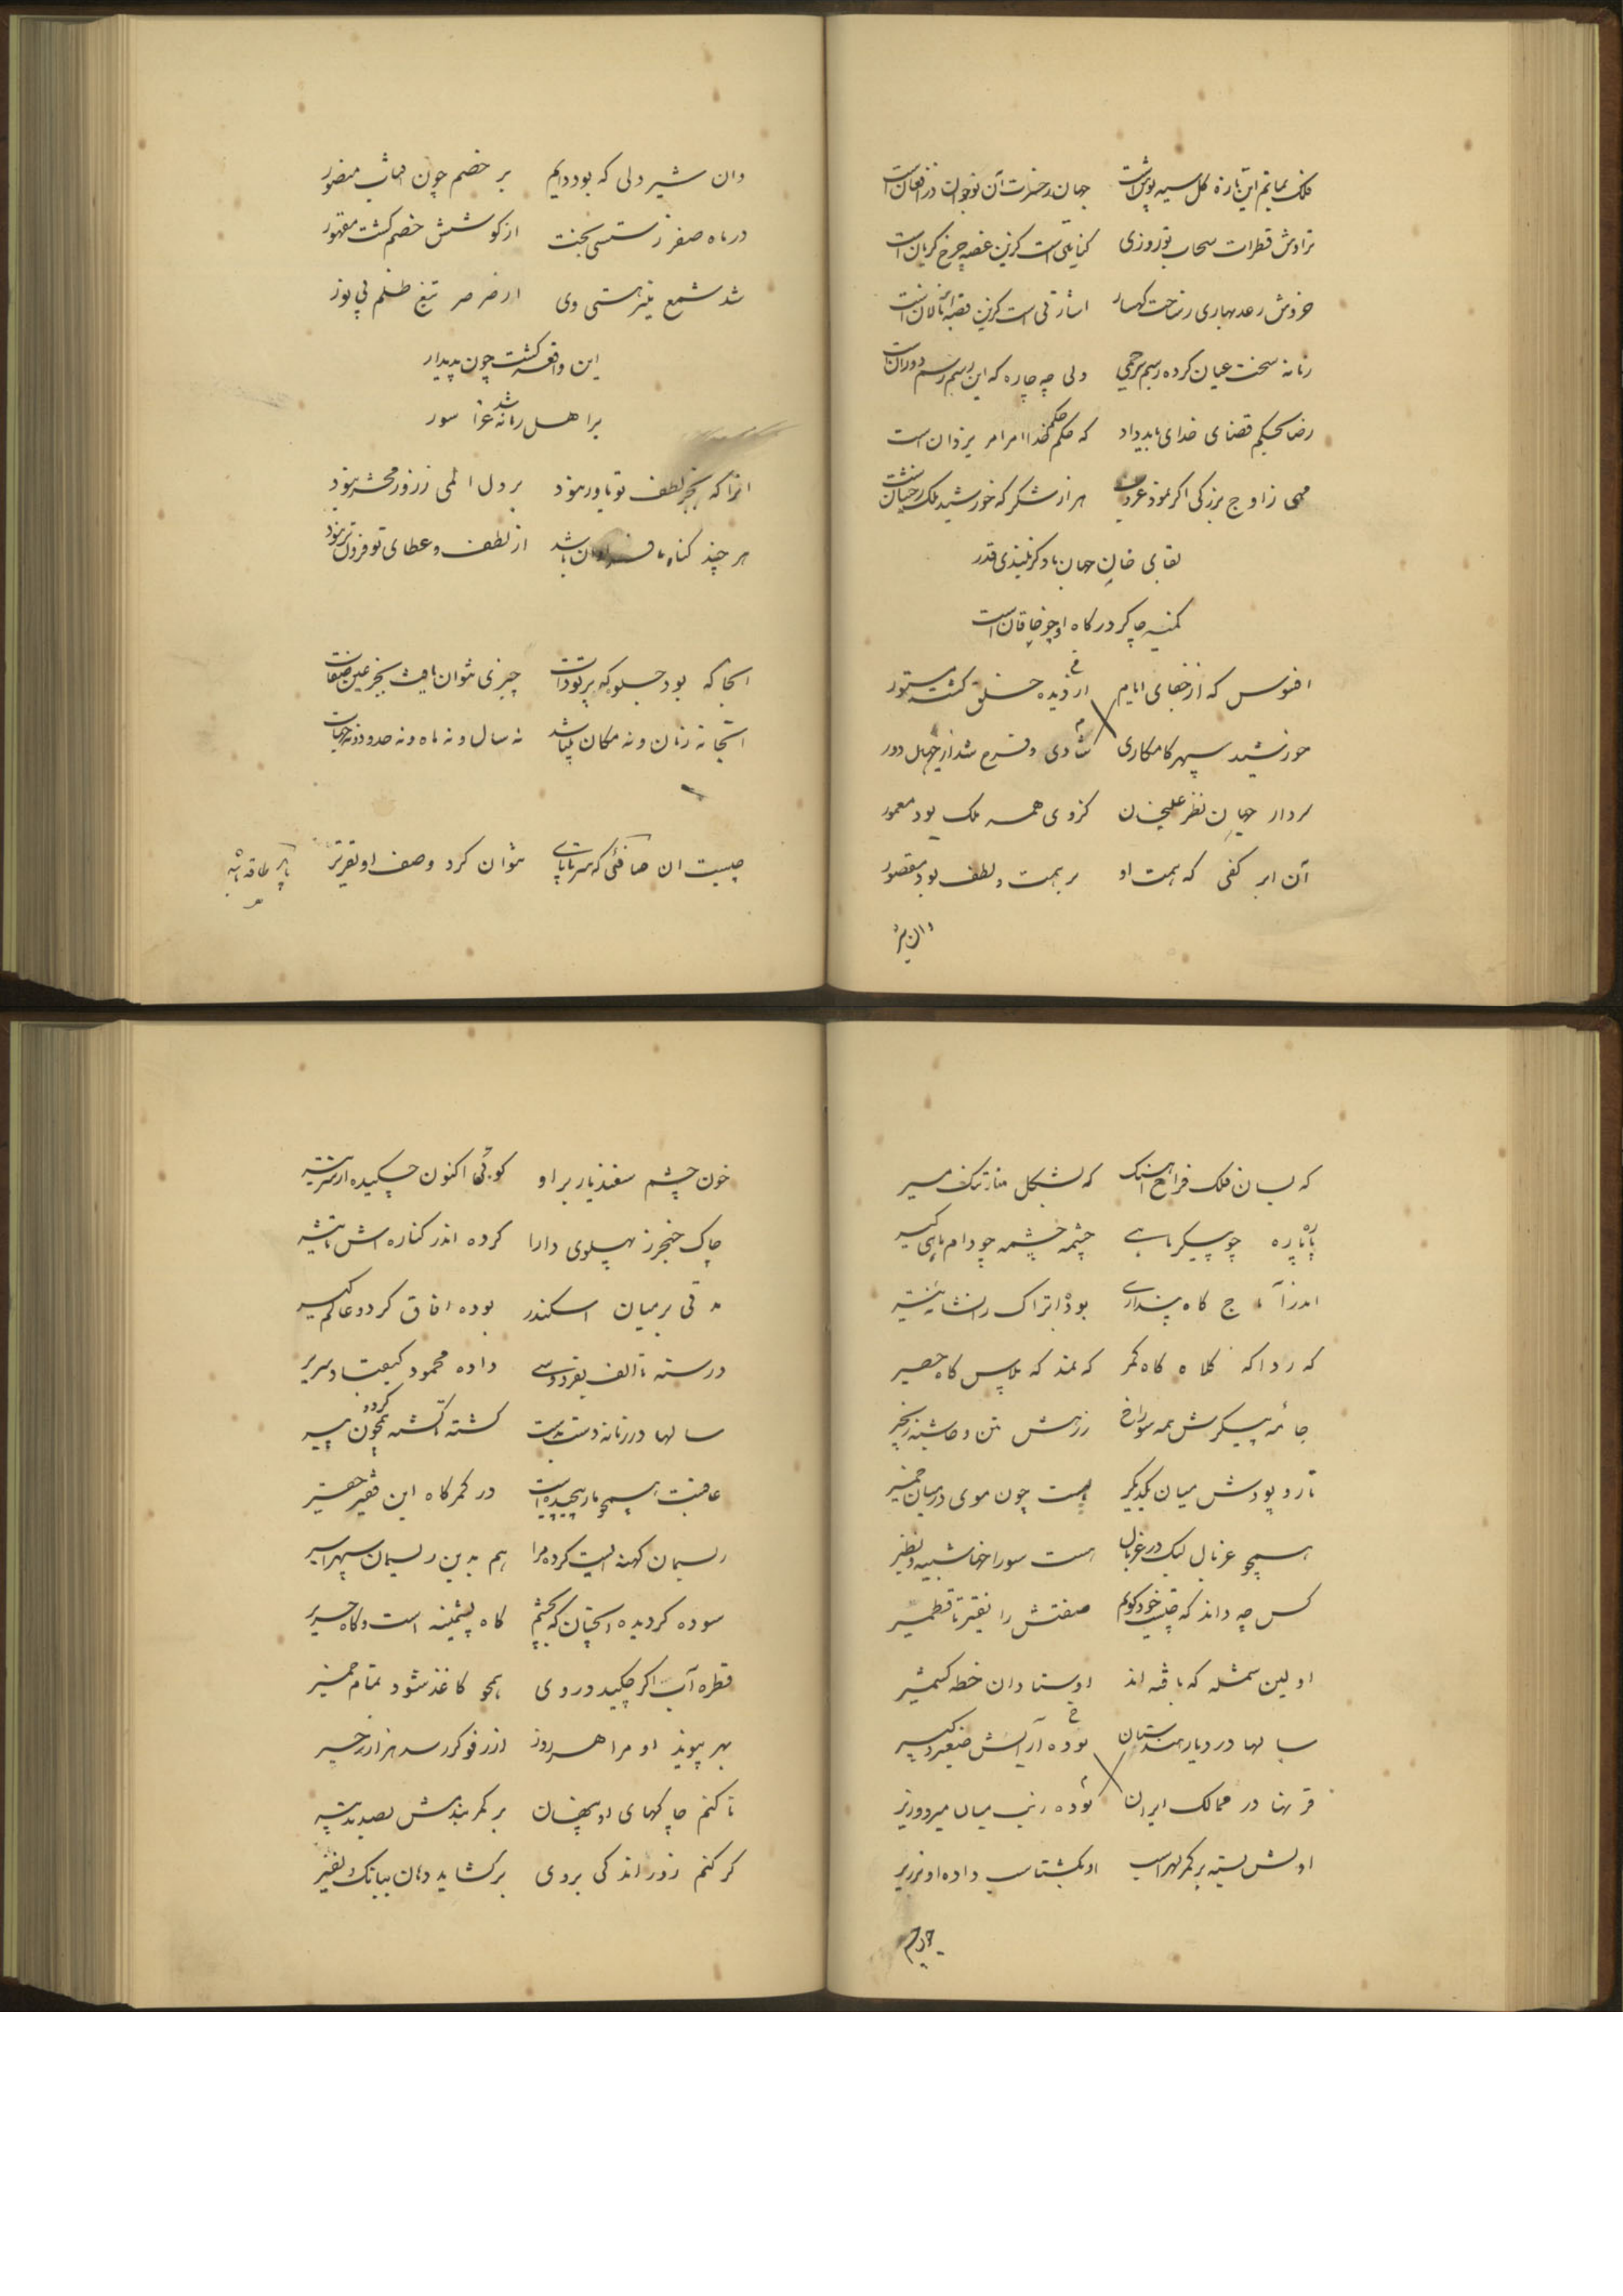 فلک بماتم این تازه گل سیه پوش است    جهان ز حسرت آن نوجوان در افغان است
تراوش قطرات سحاب نوروزی    کنایتی است کزین غصه چرخ گریان است
خروش رعد بهاری ز ساحت کهسار    اشارتی است کزین قصه نالان است
زمانه سخت عیان کرده رسم بیرحمی    ولی چه چاره که این رسم رسم دوران است
رضا بحکم قضای خدای باید داد    که حکم حکم خدا امر امر یزدان است
مهی ز اوج بزرکی اکر نمود غروب    هزار شکر که خورشید ملک رخشان است
بقای خان جهان باد کز بلندی قدر
کمینه چاکر درکاه او چو خاقان است
افسوس که از جفای ایام    از دیده خلق کشت مستور
خورشید سپهر کامکاری    شادی و فرح شد از جهان دور
سردار جهان نظر علیخان    کز وی همه ملک بود معمور
آن ابر کفی که همت او    بر همت و لطف بود مقصور
وان شیر
وان شیر دلی که بود دایم    بر خصم چون منصور
در ماه صفر ز سستی بخت    از کوشش خصم کشت مقهور
شد شمع منیر هستی وی    از صرصر تیغ ظلم بی نور
این واقعه کشت چون پدیدار
بر اهل زمانه شد عزا سور
انرا که بجز لطف تو یاور نبود    بر دل المی ز روز محشر نبود
هر چند کناه ما فراوان باشد    از لطف و عطای تو فزون تر نبود
انجا که بود جلوه که پرتو ذات    چیزی نتوان یافت بجز عین صفات
انجا نه زمان و نه مکان باشد    نه سال و نه ماه و نه حدود و نه جهات
چیست ان صافئی که سر تا پای    نتوان کرد وصف او تقریر
که بسان فلک فراخ اهنک    که بشکل منار تنک مسیر
پاره پاره چو پیکر ماهی    چشمه چشمه چو دام ماهی کیر
که ردا که کلاه کاه کمر    که نمد که پلاس کاه حصیر
جامه پیکرش همه سوراخ    رزمش متن و حاشیه زنجیر
تار و پودش میان یکدیگر    هست چون موی در میان خمیر
همچو غربال لیک در غربال    هست سوراخها شبیه و نظیر
کس چه داند که چیست خود کویم    صفتش را نقیر تا قطمیر
اولین شمله که بافته اند    اوستادان خطه کشمیر
سالها در دیار هندستان    بوده آرایش صغیر و کبیر
قرنها در ممالک ایران    بوده زیب میان میر و وزیر
اولش بسته بر کمر لهراسب    او بکشتاسب داده او بزریر
خون چشم
خون چشم سفندیار بر او    کوئی اکنون چکیده از سر تیر
چاک خنجر ز پهلوی دارا    کرده اندر کناره اش تاثیر
مدتی بر میان اسکندر    بوده افاق کرد و عالم کیر
داده محمود کیقباد سریر
سالها در زمانه دست بدست    کشته تا کشته همچون کردون پیر
عاقبت همچو مار پیچیده است    در کمرکاه این فقیر حقیر
ریسمان کهنه ایست کرده مرا    هم بدین ریسمان سپهر اسیر
سوده کردیده انچنان که بچشم    کاه پشمینه است و کاه حریر
قطره آب اکر چکید در وی    همچو کاغذ شود تمام خمیر
بهر پیوند او مرا هر روز    از رفوکر رسد هزار زحیر
تا کنم چاکهای او پنهان    بر کمر بندمش بصد تدبیر
کر کنم زور اندکی بر وی    بر کشاید دهان ببانک و نفیر